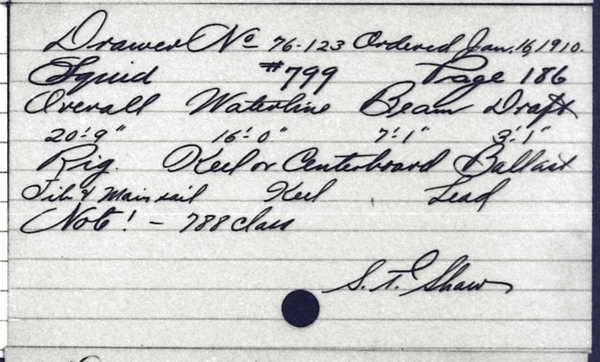 Drawer No 76-123 Ordered Jan. 16, 1910.
Squid #799 Page 186
Overall Waterline Beam Draft
20'-9" 16'-0" 7'-1" 3'-1"
Rig. Keel or Centerboard Ballast
Jib & Mainsail Keel Lead
Note! - 788 class
S. T. Shaw